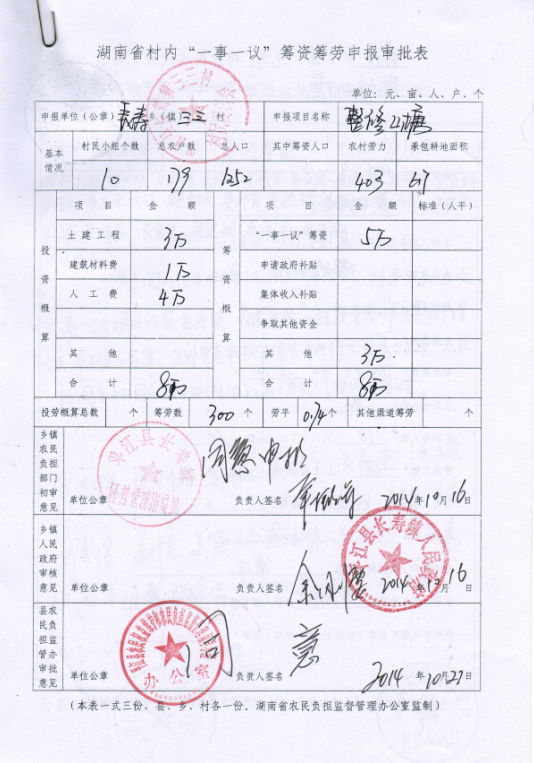 湖南省村内“一事一议”筹资筹劳申报审批表
单位：元、亩、人、户、个
申报单位（公章） 长寿 乡（镇） 三三 村 申报项目名称 整修山塘
基本情况 村民小组个数 总农户数 总人口 其中筹资人口 农村劳力 承包耕地面积
10 179 1252 403 617
投资概算 项 目 金 额 筹资概算 项 目 金 额 标准（人平）
土建工程 3万 “一事一议”筹资 5万
建筑材料费 1万 申请政府补贴
人工费 4万 集体收入补贴
争取其他资金
其 他 其 他 3万
合 计 8万 合 计 8万
投劳概算总数 个 筹劳数 300 个 劳平 0.74 个 其他渠道筹劳 个
乡镇农民负担部门初审意见 同意申报
平江县长寿镇
单位公章 负责人签名 2014年10月16日
乡镇人民政府审核意见 平江县长寿镇人民政府
单位公章 负责人签名 2014年10月16日
县农民负担监管办审批意见 同意
办公室
单位公章 负责人签名 2014年10月27日
（本表一式三份，县、乡、村各一份，湖南省农民负担监督管理办公室监制）